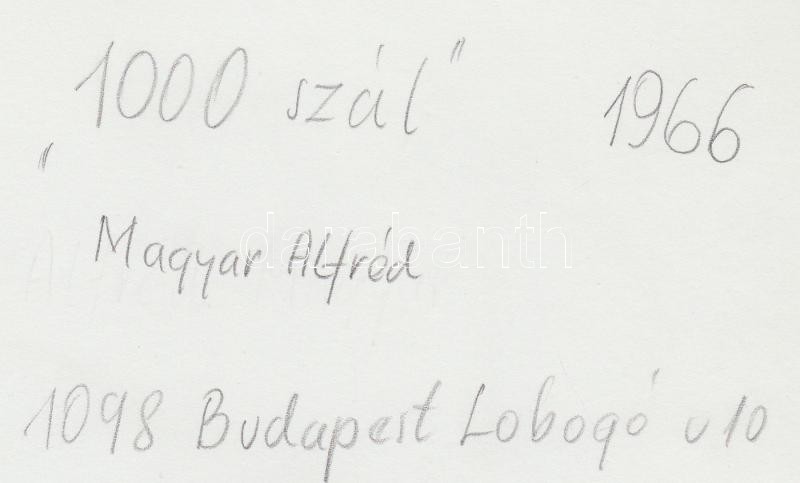 „1000 szál” 1966
Magyar Alfréd
darabanth
1098 Budapest Lobogó u 10